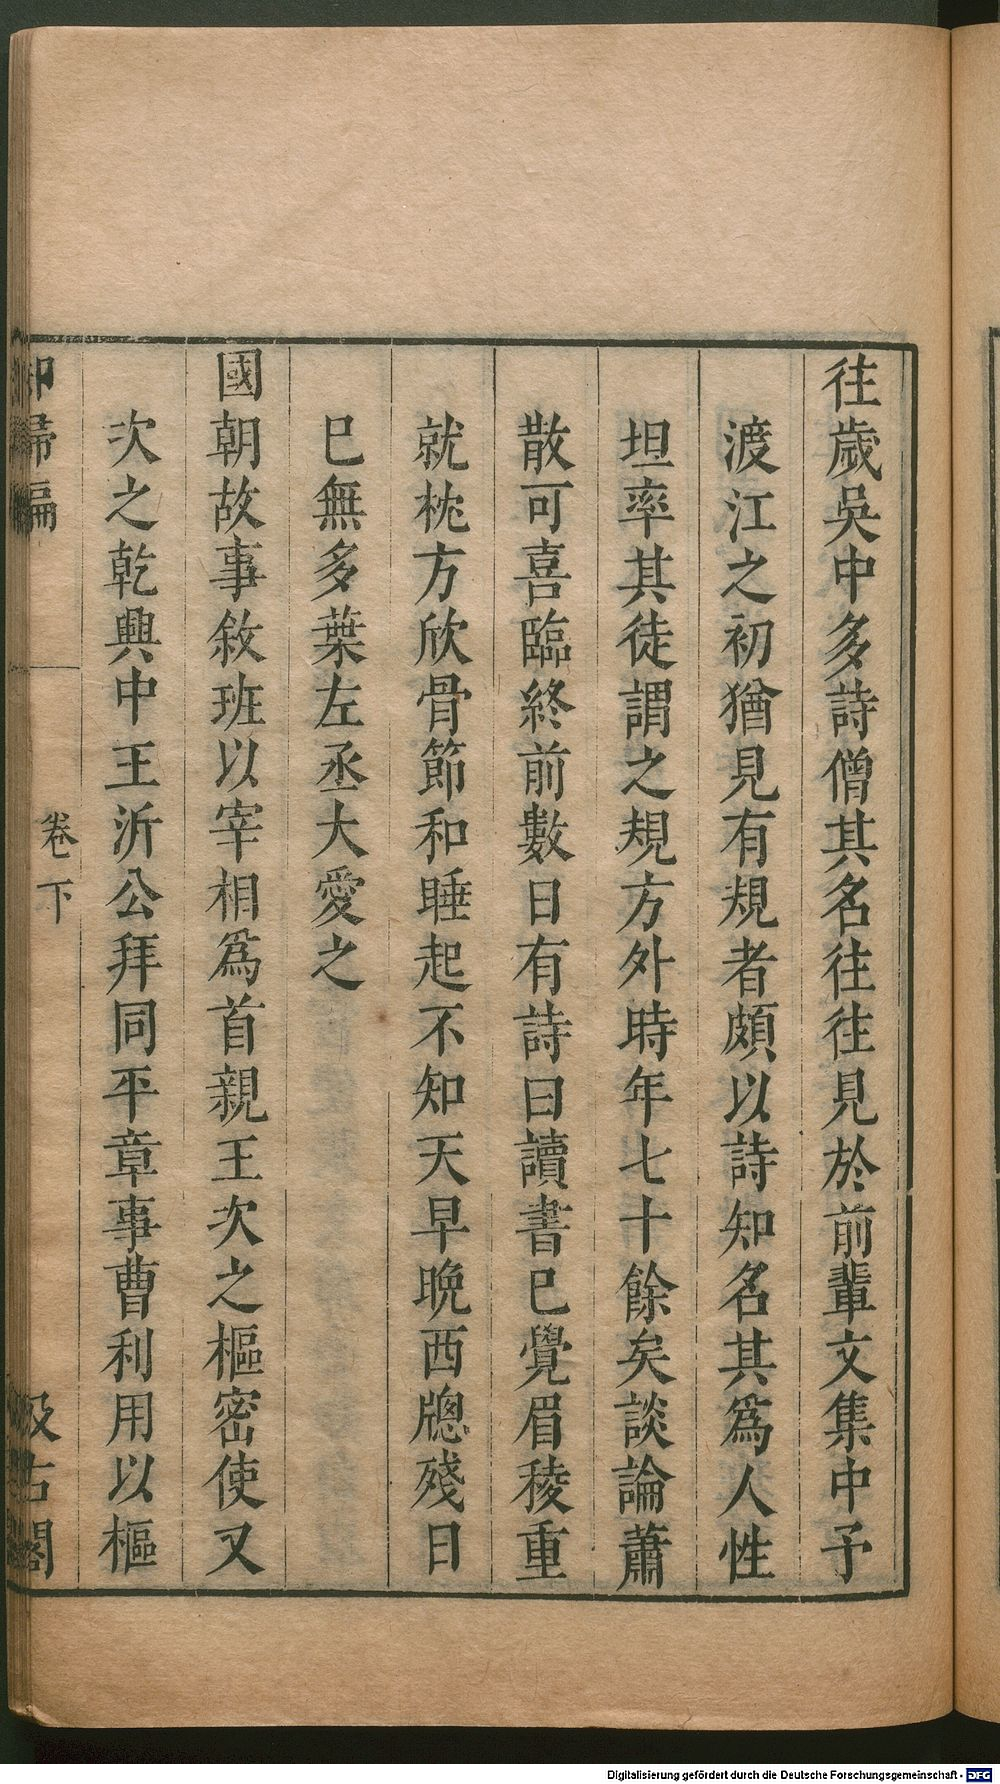 往歲吳中多詩僧其名往往見於前輩文集中予
渡江之初猶見有規者頗以詩知名其爲人性
坦率其徒謂之規方外時年七十餘矣談論蕭
散可喜臨終前數日有詩曰讀書已覺眉稜重
就枕方欣骨節和睡起不知天早晚西牕殘日
已無多葉左丞大愛之
國朝故事敘班以宰相爲首親王次之樞密使又
次之乾興中王沂公拜同平章事曹利用以樞
卻掃編
卷下
汲古閣
Digitalisierung gefördert durch die Deutsche Forschungsgemeinschaft - DFG